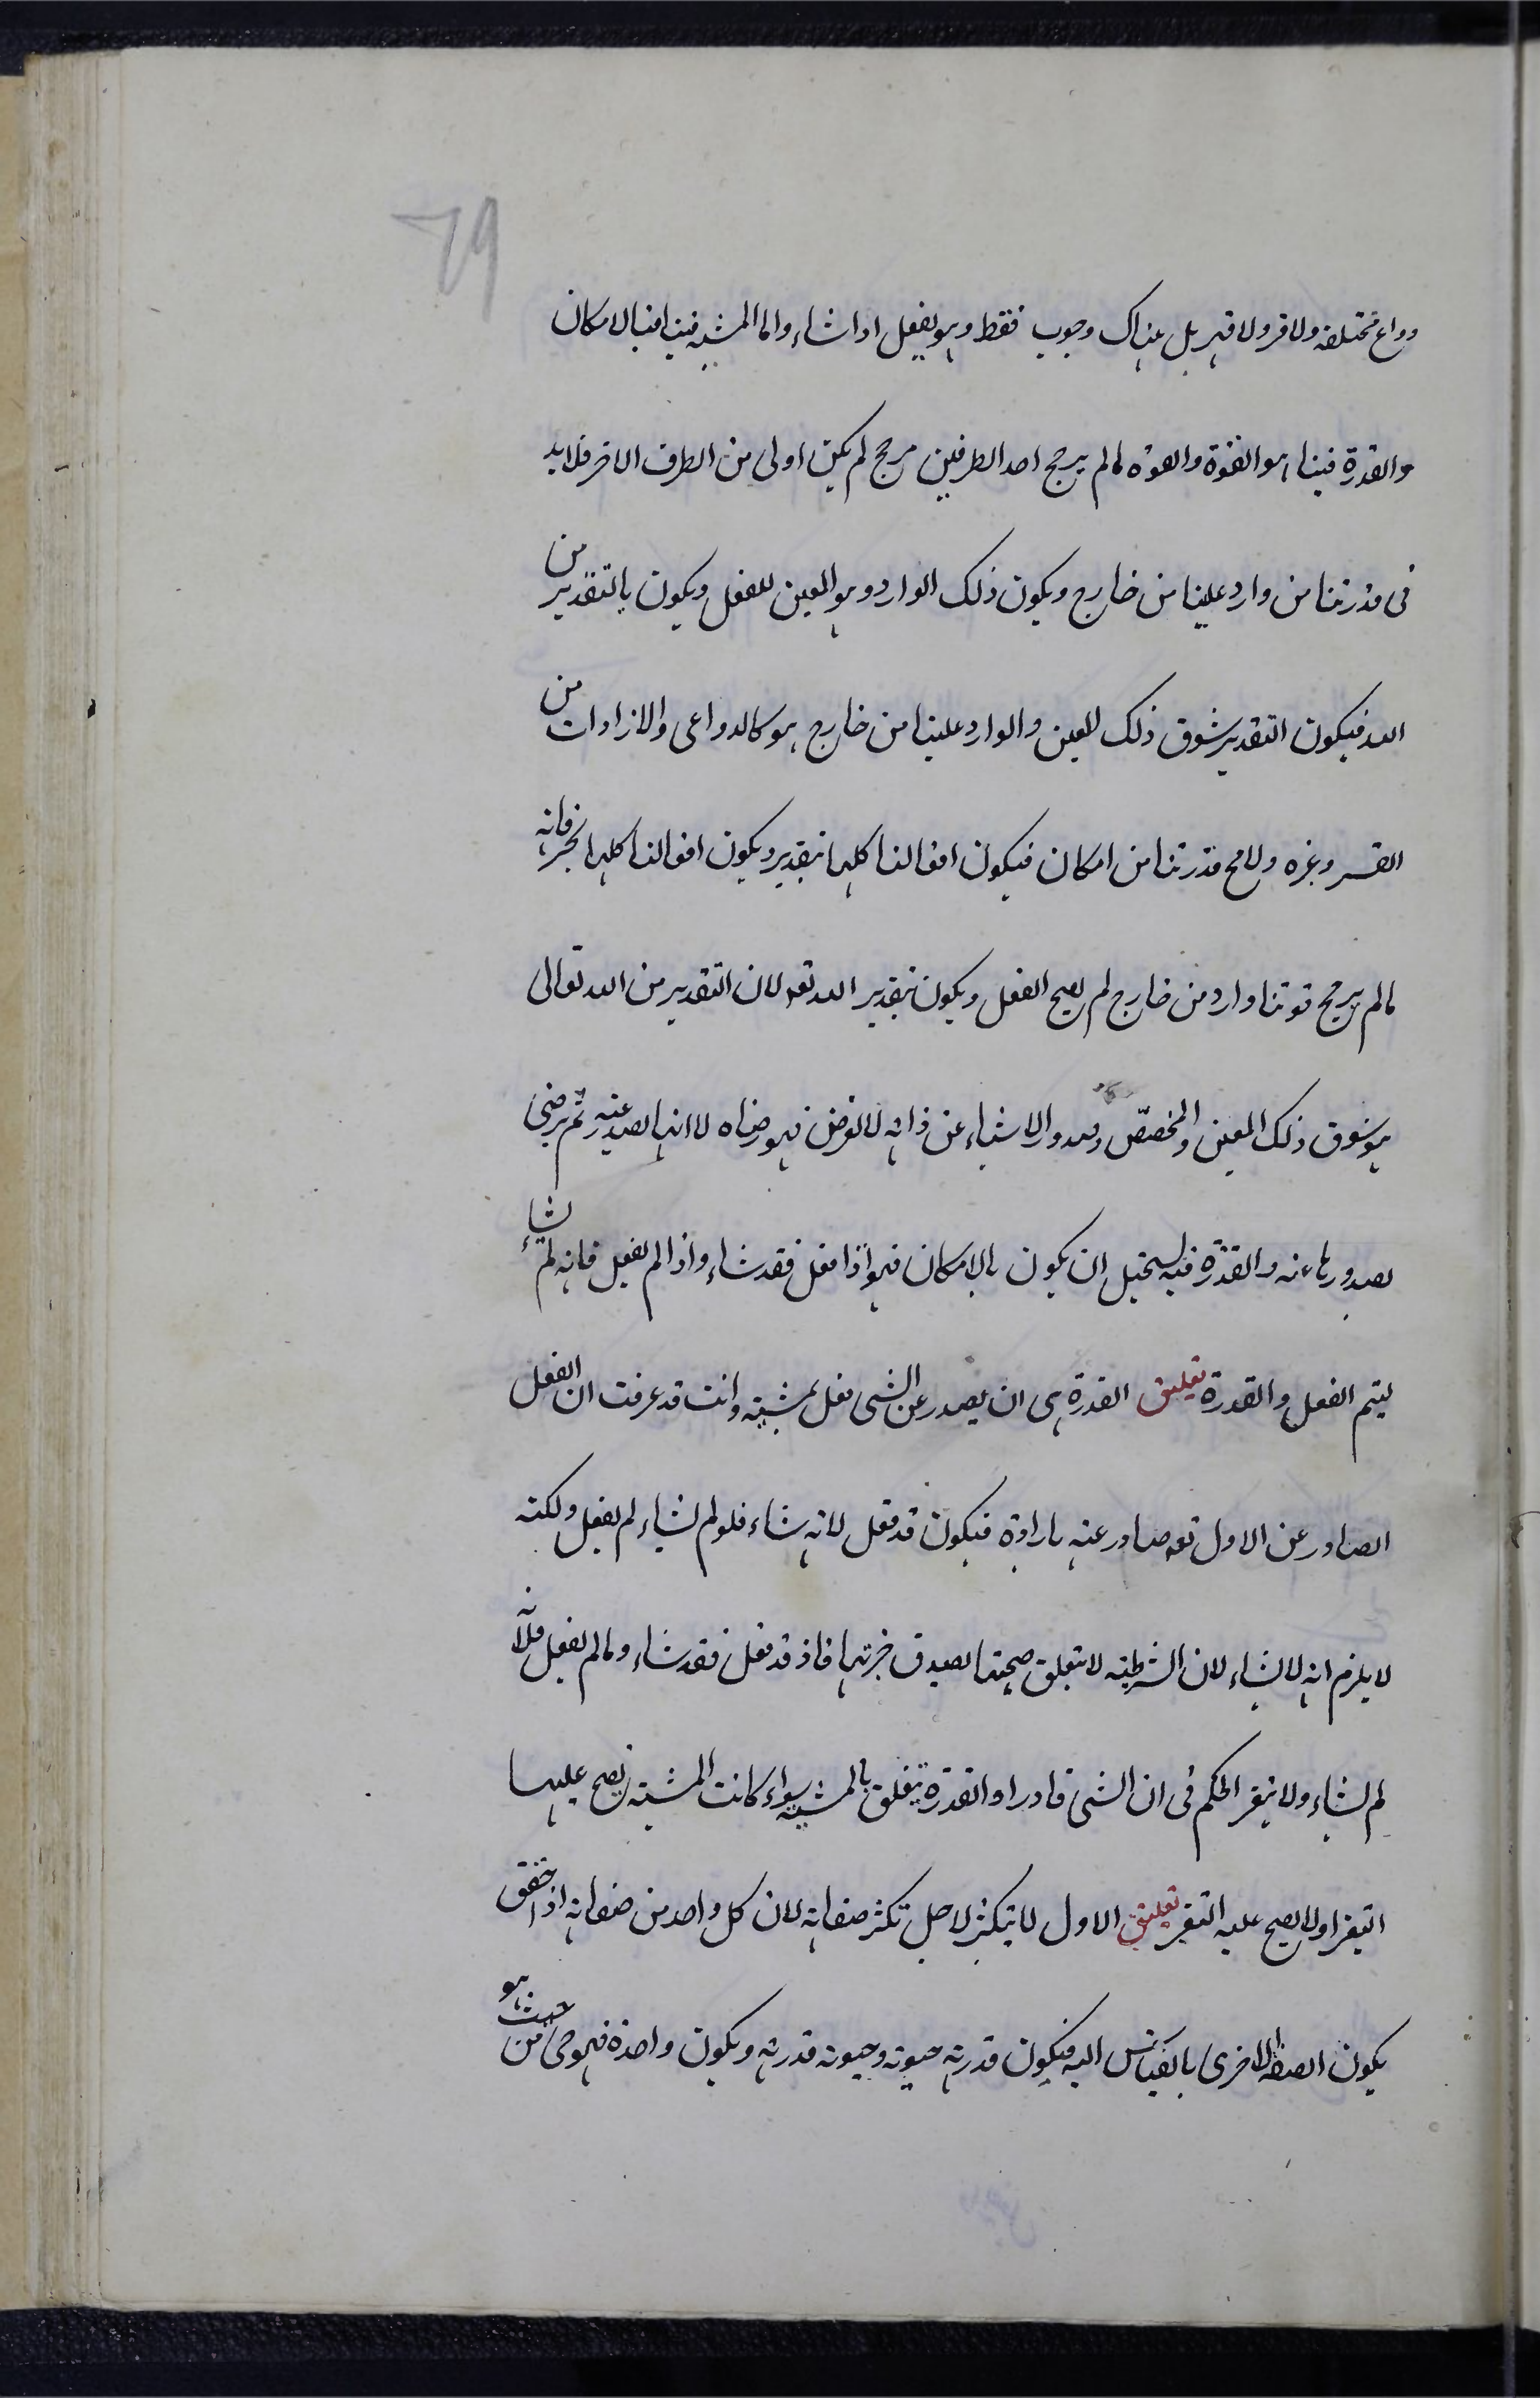 79
دواع مختلفه ولا قسر ولا قهر بل هناك وجوب فقط وهو يفعل اذا شاء واما المشيه فينا فبالامكان
والقدرة فينا هو القوة والقوه مالم يرجح احد الطرفين مرجح لم يكن اولى من الطرف الاخر فلابد
فى قدرتنا من وارد علينا من خارج ويكون ذلك الوارد وهو المعين للفعل ويكون بالتقدير من
الله فيكون التقدير يسوق ذلك المعين والوارد علينا من خارج هو كالدواعى والارادات من
القسر وغيره ولا يخ قدرتنا من امكان فيكون افعالنا كلها بتقدير ويكون افعالنا كلها بخير فانه
مالم يرجح قوتنا وارد من خارج لم يصح الفعل ويكون بتقدير الله تعه لان التقدير من الله تعالى
هو يسوق ذلك المعين والمخصّص وصدور الاشياء عن ذاته لا لغرض فهو رضاه لا انها يصدر عنه ثم يرضى
بصدورها عنه والقدرة فيه يستحيل ان يكون بالامكان فهو اذا فعل فقد شاء واذا لم يفعل فانه لم يشاء
ليتم الفعل والقدرة تعليق القدرة هى ان يصدر عن الشى فعل بمشيه وانت قد عرفت ان الفعل
الصادر عن الاول تعه صادر عنه بارادة فيكون قد فعل لانه شاء فلو لم يشاء لم يفعل ولكنه
لا يلزم انه لا يشاء لان الشرطيه لا يتعلق صحتها بصدق جزئيها فاذ قد فعل فقد شاء ومالم يفعل فلانه
لم يشاء ولا يتغير الحكم فى ان الشى قادرا والقدرة يتعلق بالمشيه سواء كانت المشيه يصح عليها
التغير اولا يصح عليه التغير تعليق الاول لا يتكثر لاجل تكثر صفاته لان كل واحد من صفاته اذا حقق
يكون الصفه الاخرى بالقياس اليه فيكون قدرته حيوته وحيوته قدرته ويكون واحدة فهو حى من حيث هو